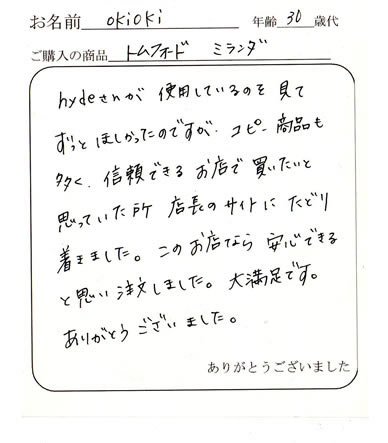 お名前 okioki 年齢 30 歳代
ご購入の商品 トムフォード ミランダ
hydeさんが 使用しているのを 見て
ずっと ほしかったのですが、コピー商品も
多く、信頼できる お店で 買いたいと
思っていた所 店長のサイトに たどり
着きました。このお店なら 安心できる
と思い 注文しました。大満足です。
ありがとう ございました。
ありがとうございました